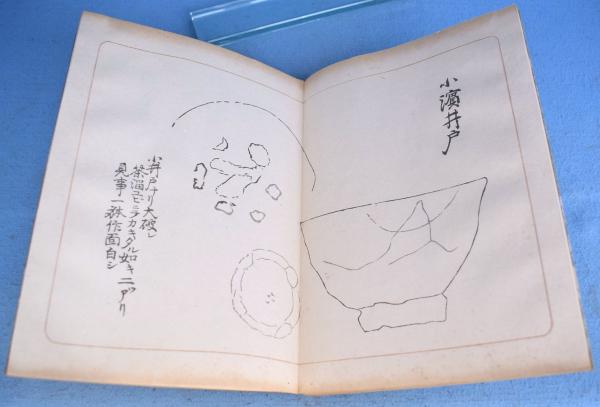 小濱井戸
小井戸ナリ大破シ
茶溜ヱビラカキタル如キニアリ
見事一躰作面白シ